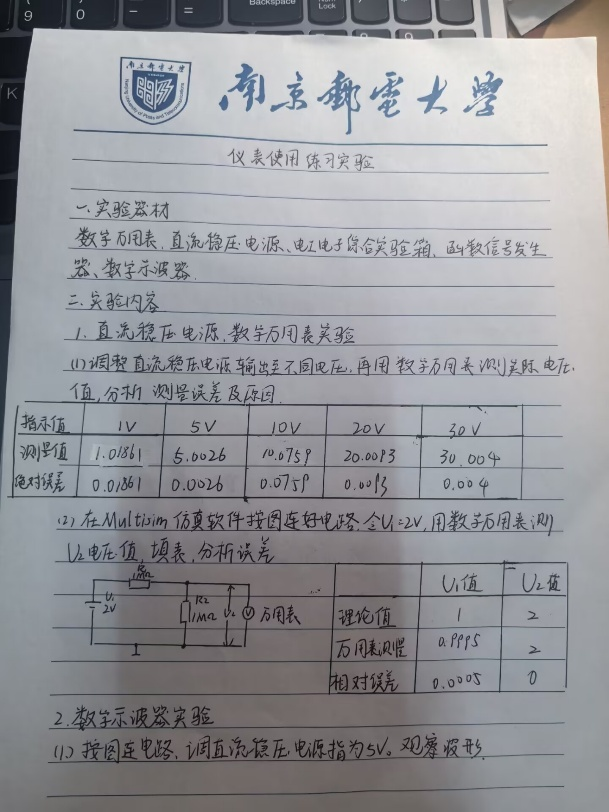 Backspace
Lock
9
(
0
)
K
南京邮电大学
南京郵電大学
仪表使用练习实验
一.实验器材
数字万用表、直流稳压电源、电工电子综合实验箱、函数信号发生
器、数字示波器.
二.实验内容
1.直流稳压电源,数字万用表实验
(1)调整直流稳压电源输出至不同电压,再用数字万用表测实际电压
值,分析测量误差及原因.
指示值 1V 5V 10V 20V 30V
测量值 1.01861 5.0026 10.0759 20.0093 30.004
绝对误差 0.01861 0.0026 0.0759 0.0093 0.004
(2)在Multisim仿真软件按图连好电路,令U1=2V,用数字万用表测
U2电压值,填表,分析误差
1MΩ
U1
2V
R2
1MΩ
U2
V
万用表
U1值 U2值
理论值 1 2
万用表测量 0.9995 2
相对误差 0.0005 0
2.数字示波器实验
(1.)按图连电路,调直流稳压电源指为5V。观察波形.